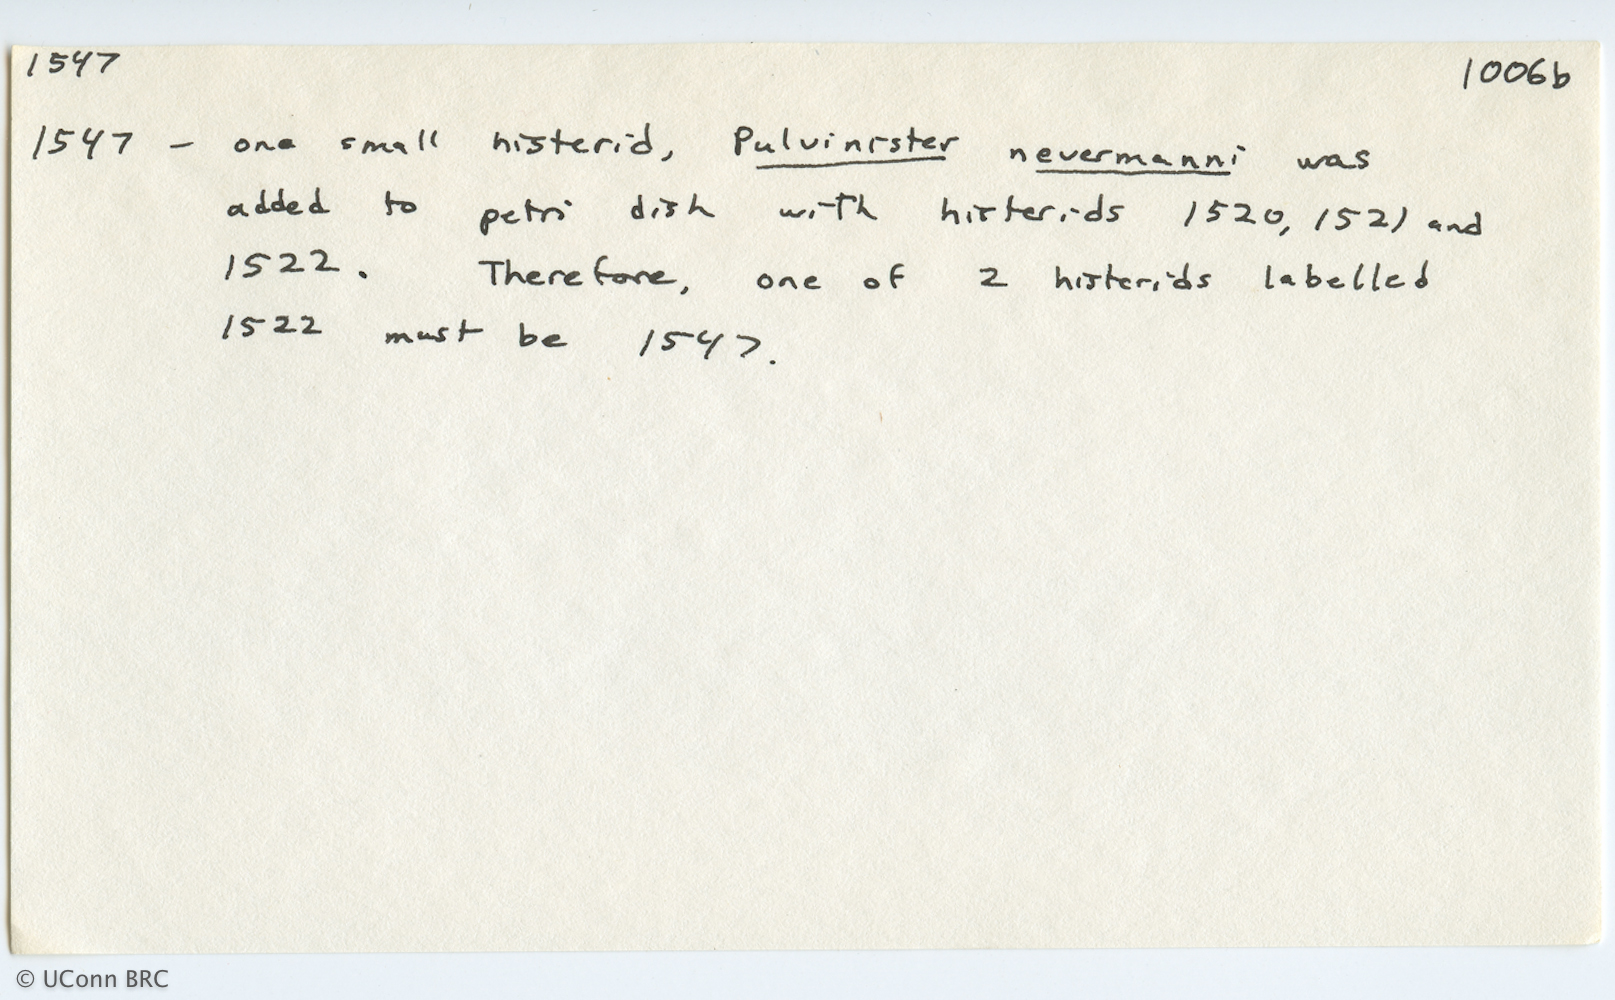 1547
1006b
1547 – one small histerid, Pulvinister nevermanni was
added to petri dish with histerids 1520, 1521 and
1522. Therefore, one of 2 histerids labelled
1522 must be 1547.
© UConn BRC